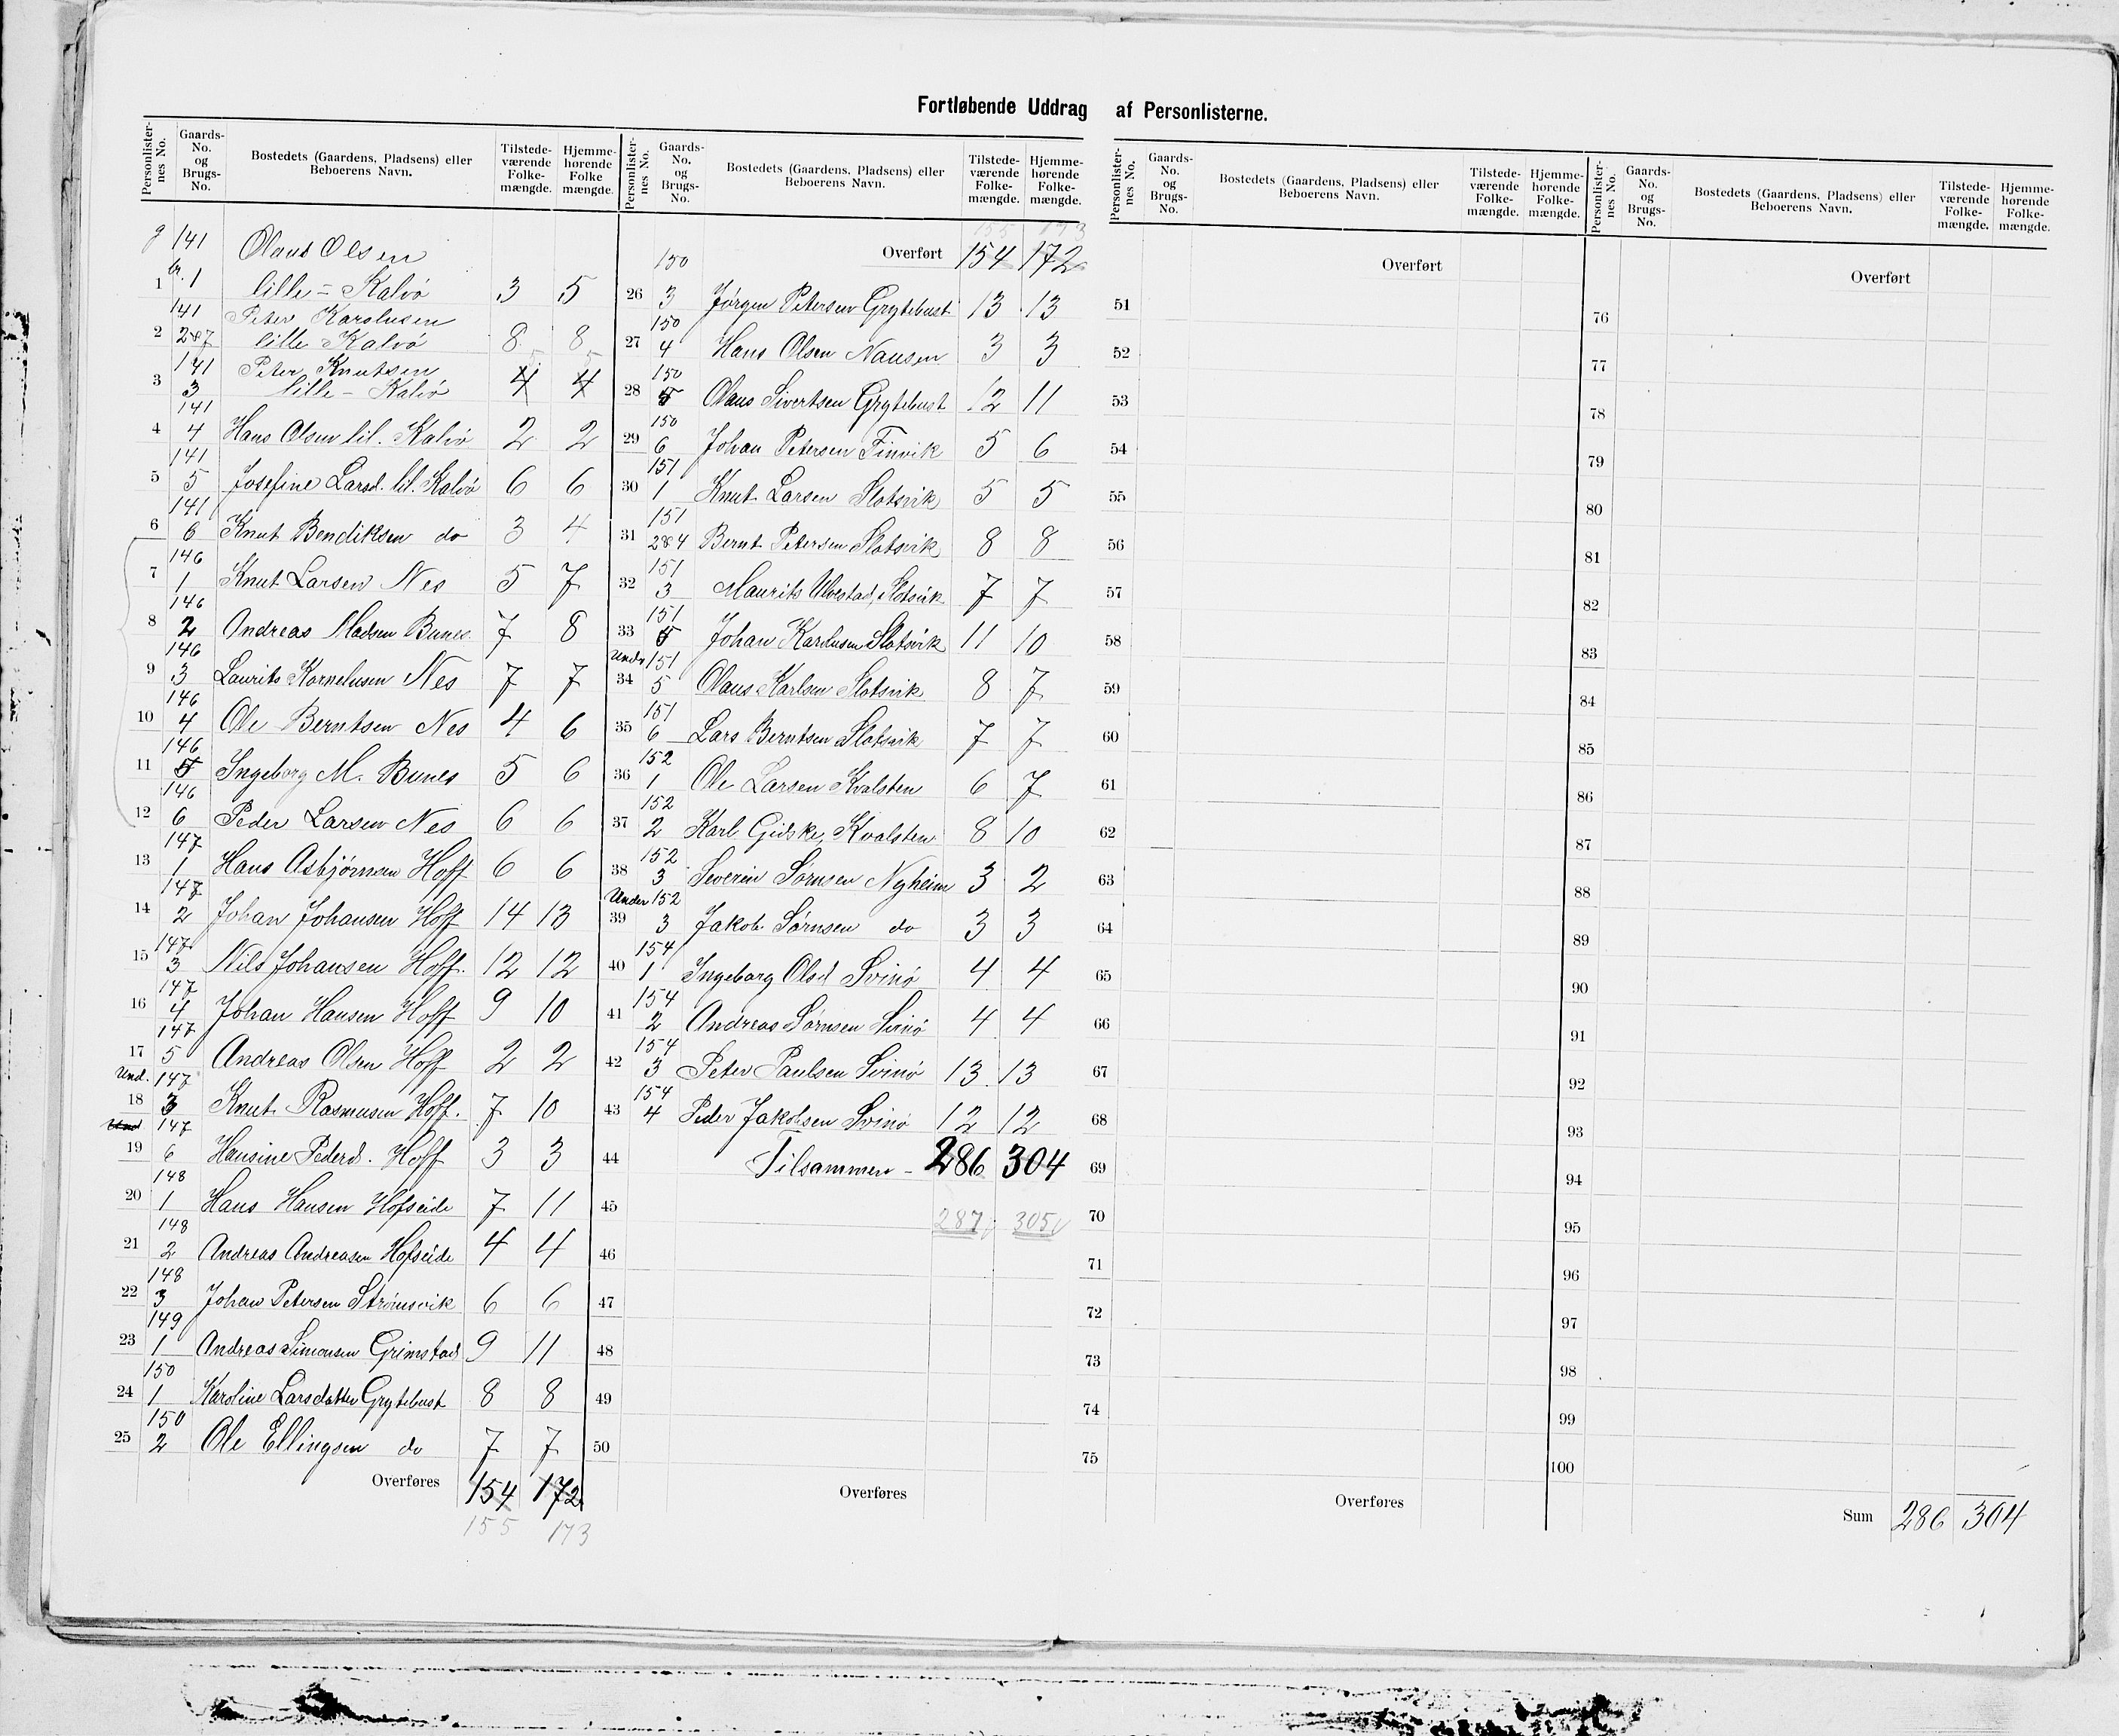 Fortløbende Uddrag af Personlisterne.
Personlister-nes No. Gaards-No. og Brugs-No. Bostedets (Gaardens, Pladsens) eller Beboerens Navn. Tilstede-værende Folke-mængde. Hjemme-hørende Folke mængde.
g 141 Olaus Olsen
1 br. 1 lille = Kalvø 3 5
141 Peter Karolusen
2 2&7 lille Kalvø 8 8
141 Peter Knutsen 5 5
3 3 lille - Kalvø 4 4
141
4 4 Hans Olsen lil. Kalvø 2 2
141
5 5 Josefine Larsd. lil. Kalvø 6 6
141
6 6 Knut Bendiksen do 3 4
146
7 1 Knut Larsen Nes 5 7
146
8 2 Andreas Madsen Bunes 7 8
146
9 3 Laurits Kornelusen Nes 7 7
146
10 4 Ole Berntsen Nes 4 6
146
11 5 Ingeborg M. Bunes 5 6
146
12 6 Peder Larsen Nes 6 6
147
13 1 Hans Asbjørnsen Hoff 6 6
147
14 2 Johan Johansen Hoff 14 13
147
15 3 Nils Johansen Hoff. 12 12
147
16 4 Johan Hansen Hoff 9 10
147
17 5 Andreas Olsen Hoff 2 2
Und. 147
18 3 Knut Rasmusen Hoff. 7 10
Und 147
19 6 Hansine Pedersd. Hoff 3 3
148
20 1 Hans Hansen Hofseide 7 11
148
21 2 Andreas Andreasen Hofseide 4 4
148
22 3 Johan Petersen Strømsvik 6 6
149
23 1 Andreas Simonsen Grimstad 9 11
150
24 1 Karoline Larsdatter Grytebust 8 8
150
25 2 Ole Ellingsen do 7 7
Overføres 154 172
155 173
Personlister-nes No. Gaards-No. og Brugs-No. Bostedets (Gaardens, Pladsens) eller Beboerens Navn. Tilstede-værende Folke-mængde. Hjemme-hørende Folke-mængde.
155 173
150 Overført 154 172
26 3 Jørgen Petersen Grytebust 13 13
150
27 4 Hans Olsen Nausen 3 3
150
28 5 Olaus Sivertsen Grytebust 12 11
150
29 6 Johan Petersen Finvik 5 6
151
30 1 Knut Larsen Slotsvik 5 5
151
31 2&4 Bernt Petersen Slotsvik 8 8
151
32 3 Maurits Ulvestad, Slotsvik 7 7
151
33 5 Johan Karolusen Slotsvik 11 10
Undr 151
34 5 Olaus Karlsen Slotsvik 8 7
151
35 6 Lars Berntsen Slotsvik 7 7
152
36 1 Ole Larsen Kvalsten 6 7
152
37 2 Karl Gidske, Kvalsten 8 10
152
38 3 Severin Sørnsen Nyheim 3 2
Under 152
39 3 Jakob Sørnsen do 3 3
154
40 1 Ingeborg Olsd Svinø 4 4
154
41 2 Andreas Sørnsen Svinø 4 4
154
42 3 Peter Paulsen Svinø 13 13
154
43 4 Peder Jakobsen Svinø 12 12
44 Tilsammen - 286 304
45 287 305
46
47
48
49
50
Overføres
Personlister-nes No. Gaards-No. og Brugs-No. Bostedets (Gaardens, Pladsens) eller Beboerens Navn. Tilstede-værende Folke-mængde. Hjemme-hørende Folke-mængde.
Overført
51
52
53
54
55
56
57
58
59
60
61
62
63
64
65
66
67
68
69
70
71
72
73
74
75
Overføres
Personlister-nes No. Gaards-No. og Brugs-No. Bostedets (Gaardens, Pladsens) eller Beboerens Navn. Tilstede-værende Folke-mængde. Hjemme-hørende Folke-mængde.
Overført
76
77
78
79
80
81
82
83
84
85
86
87
88
89
90
91
92
93
94
95
96
97
98
99
100
Sum 286 304